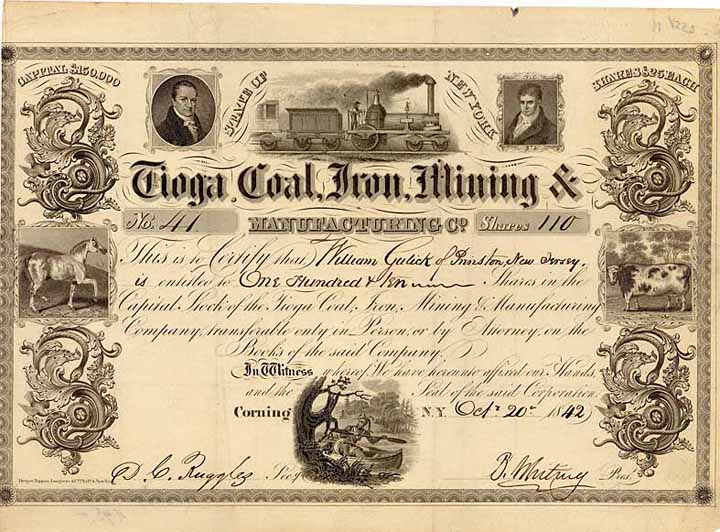 CAPITAL $150,000
STATE OF NEW YORK
SHARES $25 EACH
Tioga Coal, Iron, Mining &
MANUFACTURING Co.
No. 41
Shares 110
This is to Certify that William Gulick of Princeton, New Jersey.
is entitled to One Hundred & Ten Shares in the
Capital Stock of the Tioga Coal, Iron, Mining & Manufacturing
Company, transferable only in Person, or by Attorney, on the
Books of the said Company.
In Witness whereof, We have hereunto affixed our Hands,
and the Seal of the said Corporation.
Corning N.Y. Oct. 20th 1842
D. C. Ruggles Secy
B. Whitney Pres.